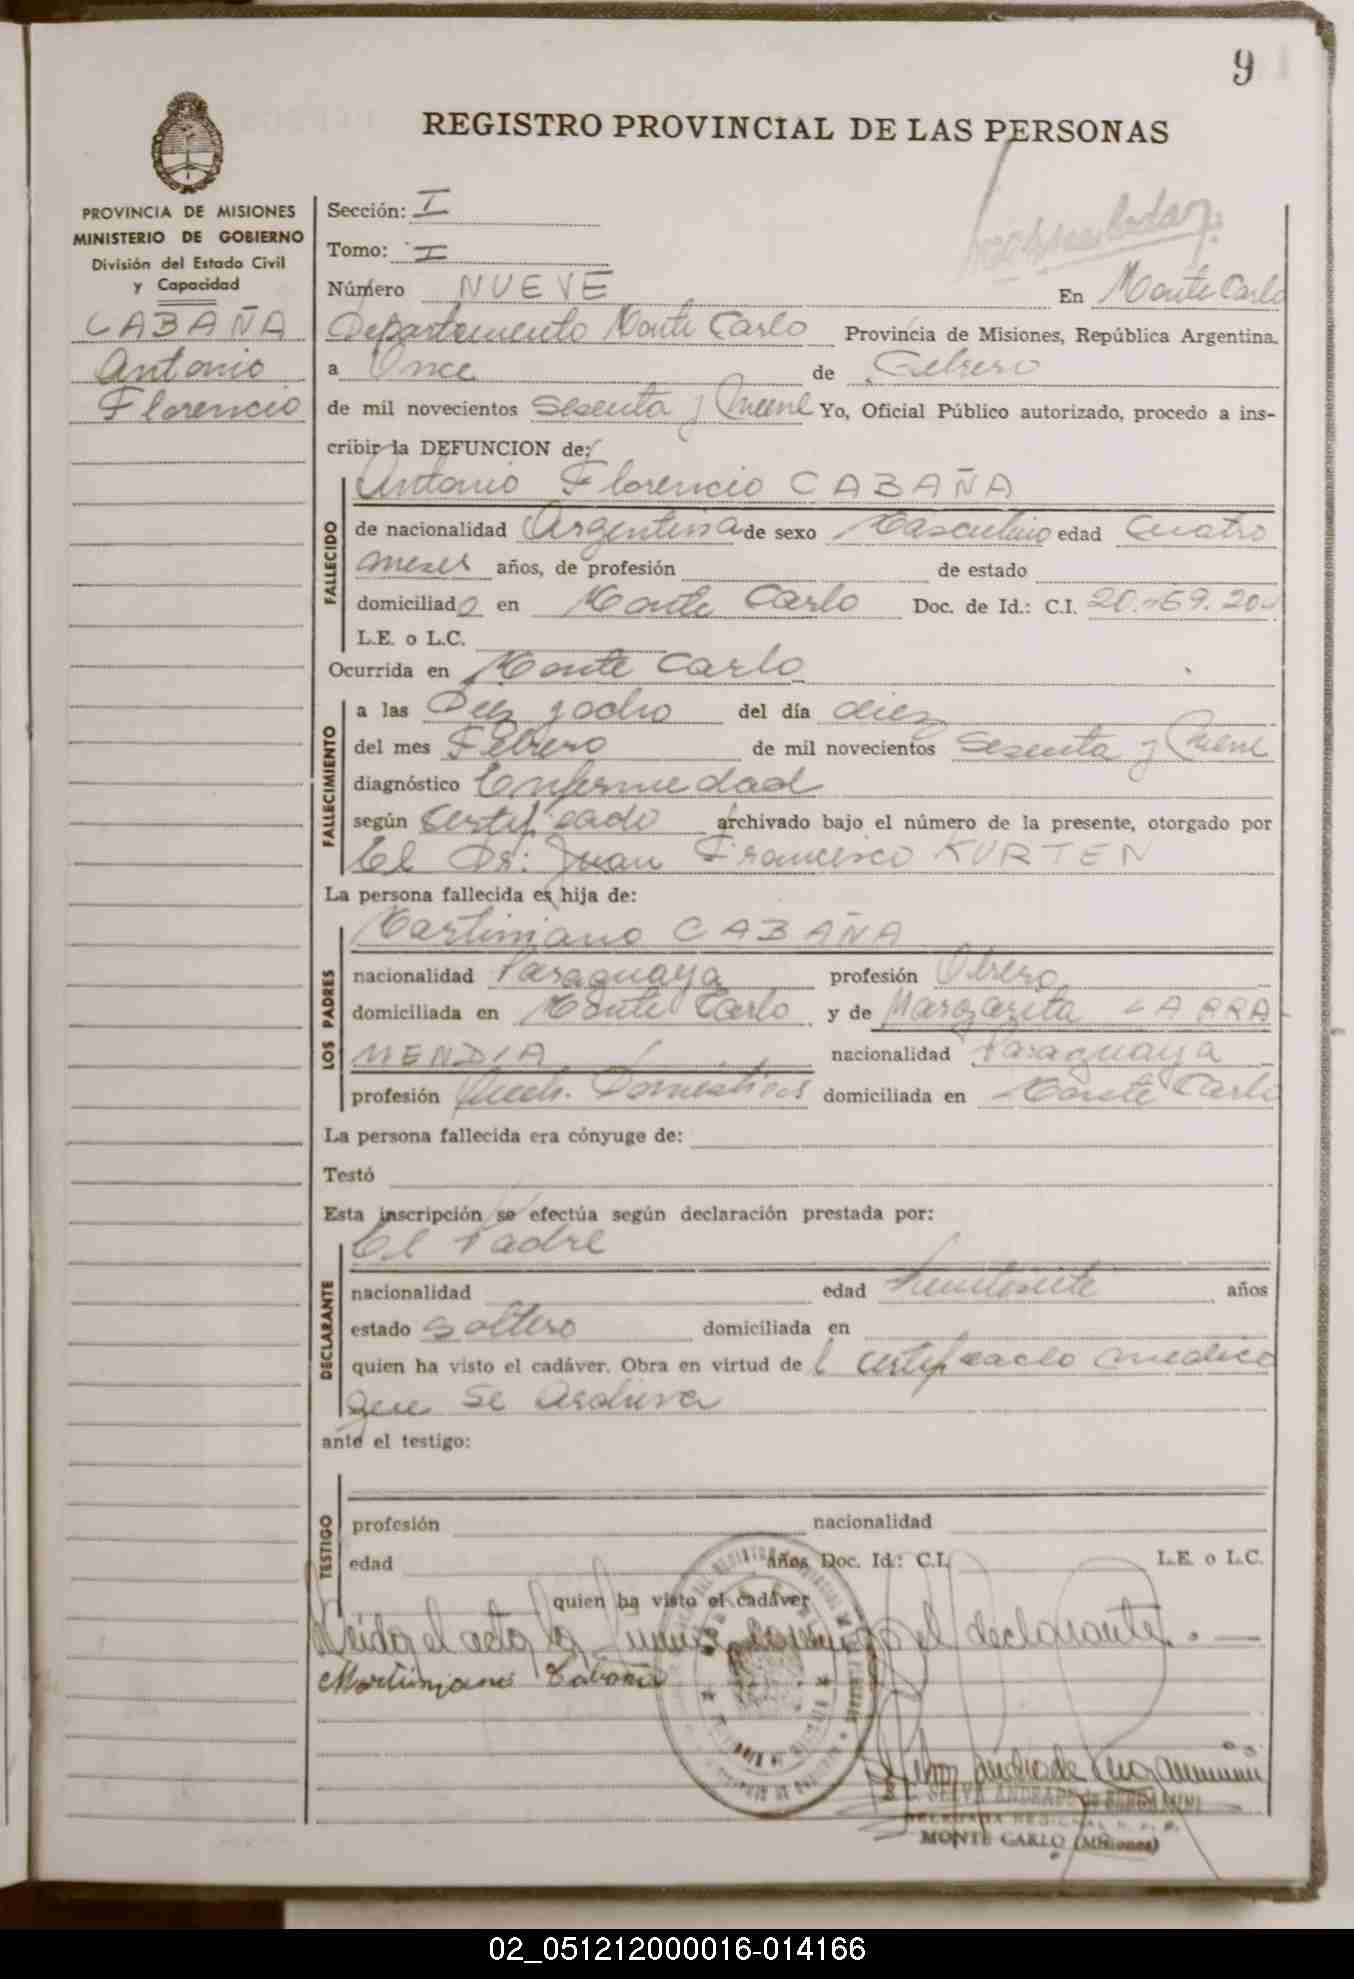 9
REGISTRO PROVINCIAL DE LAS PERSONAS
PROVINCIA DE MISIONES
MINISTERIO DE GOBIERNO
División del Estado Civil
y Capacidad
CABAÑA
Antonio
Florencio
Sección: I
Tomo: I
Número NUEVE En Monte Carlo
Departamento Monte Carlo Provincia de Misiones, República Argentina,
a Once de Febrero
de mil novecientos Sesenta y Nueve Yo, Oficial Público autorizado, procedo a ins-
cribir la DEFUNCION de:
Antonio Florencio CABAÑA
FALLECIDO
de nacionalidad Argentina de sexo Masculino edad Cuatro
meses años, de profesión de estado
domiciliado en Monte Carlo Doc. de Id.: C.I.
L.E. o L.C.
Ocurrida en Monte Carlo
FALLECIMIENTO
a las Diez y ocho del día diez
del mes Febrero de mil novecientos Sesenta y Nueve
diagnóstico Enfermedad
según Certificado archivado bajo el número de la presente, otorgado por
El Dr: Juan Francisco KURTEN
La persona fallecida es hija de:
Martiniano CABAÑA
LOS PADRES
nacionalidad Paraguaya profesión Obrero
domiciliada en Monte Carlo y de Margarita LARRA-
MENDIA nacionalidad Paraguaya
profesión Queh. Domésticos domiciliada en Monte Carlo
La persona fallecida era cónyuge de:
Testó
Esta inscripción se efectúa según declaración prestada por:
El Padre
DECLARANTE
nacionalidad edad años
estado Soltero domiciliada en
quien ha visto el cadáver. Obra en virtud del certificado médico
que se archiva
ante el testigo:
TESTIGO
profesión nacionalidad
edad años Doc. Id.: C.I. L.E. o L.C.
quien ha visto el cadáver
Leida el acta la firma el declarante. -
Martiniano Cabaña
SELVA ANDRADE de BERGAMINI
MONTE CARLO (Misiones)
02_051212000016-014166